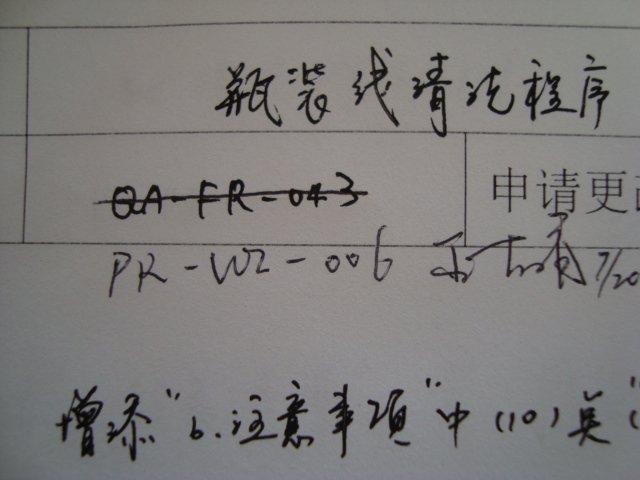 瓶装线清洗程序
QA-FR-043
申请更改
PR-WI-006 7/20
增添"6.注意事项"中(10)类"(